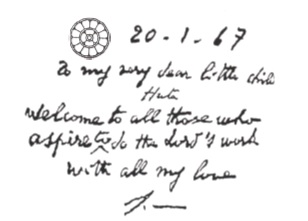 20-1-67
To my very dear little child
Huta
welcome to all those who
aspire to do the Lord's work
with all my love